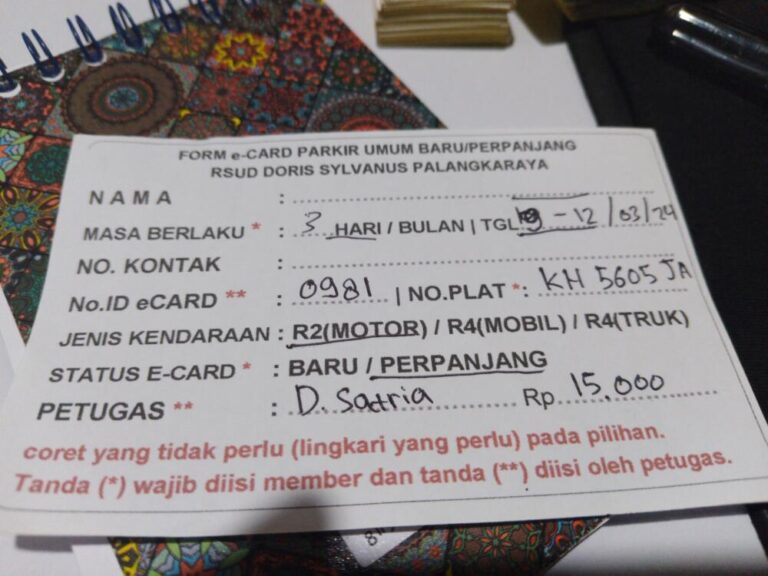 FORM e-CARD PARKIR UMUM BARU/PERPANJANG
RSUD DORIS SYLVANUS PALANGKARAYA
NAMA :
MASA BERLAKU * : 3 HARI / BULAN | TGL - 12 / 03 / 24
NO. KONTAK :
No.ID eCARD ** : 0981 | NO.PLAT *: KH 5605 JA
JENIS KENDARAAN : R2(MOTOR) / R4(MOBIL) / R4(TRUK)
STATUS E-CARD * : BARU / PERPANJANG
PETUGAS ** : D. Satria Rp 15.000
coret yang tidak perlu (lingkari yang perlu) pada pilihan.
Tanda (*) wajib diisi member dan tanda (**) diisi oleh petugas.